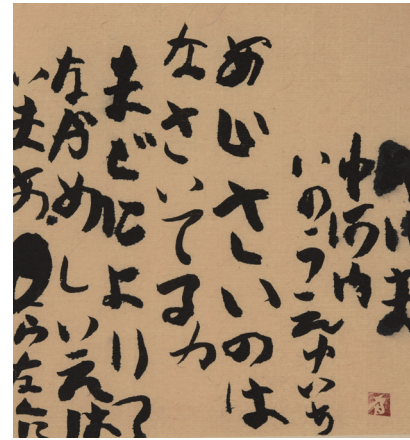 中河内
いのうえゆいち
あじさいのは
なさいてるカ
まどによりて
ながめしいえは
いまあ